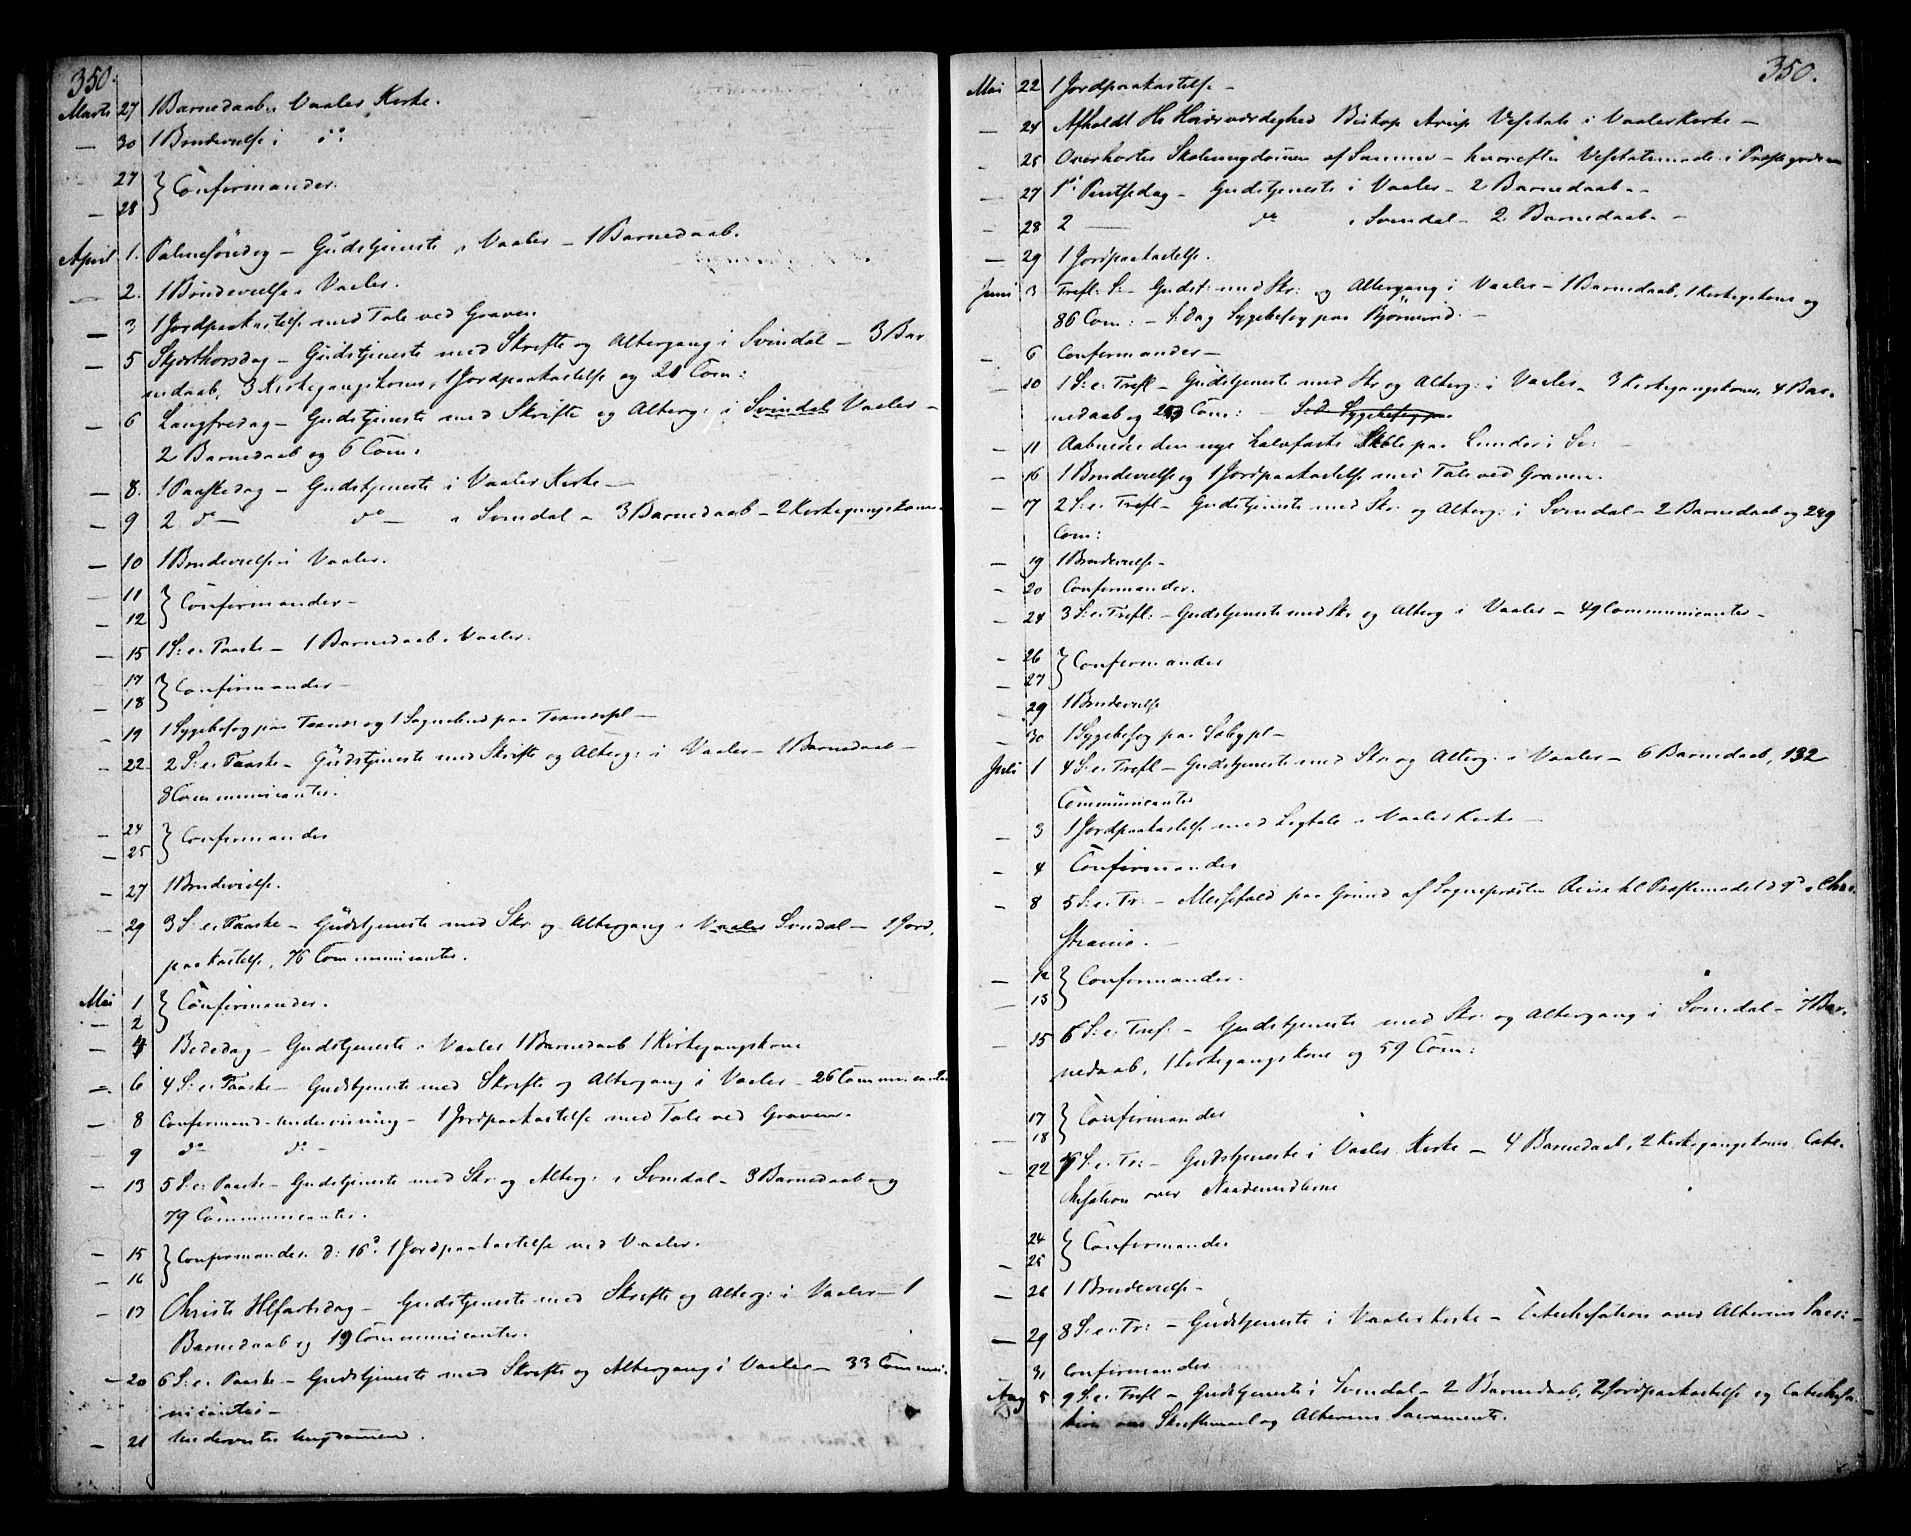 350.
Marts 27 1 Barnedaab i Vaaler Kirke.
— 30 1 Brudevielse i do
27
— 28 } Confirmander.
April 1. Palmesöndag — Gudstjeneste i Vaaler — 1 Barnedaab.
— 2. 1 Brudevielse i Vaaler.
— 3 1 Jordpaakastelse med Tale ved Graven
— 5 Skjærthorsdag — Gudstjeneste med Skrifte og Altergang i Svindal — 3 Bar
nedaab, 3 Kirkegangskoner, 1 Jordpaakastelse og 20 Com:
— 6 Langfredag — Gudstjeneste med Skrifte og Alterg: i Svindal Vaaler —
2 Barnedaab og 6 Com:
— 8. 1 Paaskedag — Gudstjeneste i Vaaler Kirke —
— 9 2 do — do — i Svindal — 3 Barnedaab — 2 Kirkegangskoner
— 10 1 Brudevielse i Vaaler.
— 11
— 12 } Confirmander —
— 15 1 S: e. Paaske — 1 Barnedaab i Vaaler.
— 17
— 18 } Confirmander —
— 19 1 Sygebesøg paa og 1 Sognebud paa
— 22 2 S: e. Paaske — Gudstjeneste med Skrifte og Alterg: i Vaaler — 1 Barnedaab —
8 Communicanter.
— 24
— 25 } Confirmander
— 27 1 Brudevielse.
— 29 3 S: e. Paaske — Gudstjeneste med Skr. og Altergang i Vaaler Svindal — 1 Jord,
paakastelse, 76 Communicanter.
Mai 1
— 2 } Confirmander.
— 4 Bededag — Gudstjeneste i Vaaler 1 Barnedaab 1 Kirkegangskone
— 6 4 S: e. Paaske — Gudstjeneste med Skrifte og Altergang i Vaaler — 26 Communicanter
— 8 Confirmand-undervisning — 1 Jordpaakastelse med Tale ved Graven.
— 9 do do —
— 13 5 S: e. Paaske — Gudstjeneste med Skr. og Alterg: i Svindal — 3 Barnedaab og
79 Communicanter.
— 15
— 16 } Confirmander. d: 16d 1 Jordpaakastelse ved Vaaler.
— 17 Christi Hlfartsdag — Gudstjeneste med Skrifte og Alterg: i Vaaler — 1
Barnedaab og 19 Communicanter.
— 20 6 S: e. Paaske — Gudstjeneste med Skrifte og Altergang i Vaaler — 33 Commu-
nicanter —
— 21 Underviste Ungdommen.
350.
Mai 22 1 Jordpaakastelse —
— 24 Afholdt Hs Høiærværdighed Biskop Arup Visitats i Vaaler Kirke —
— 25 Overhortes Skoleungdommen af Sammne — hvorefter Visitatsmøde i Præstegaarden
— 27 1ste Pintsedag — Gudstjeneste i Vaaler — 2 Barnedaab —
— 28 2 — do i Svindal — 2 Barnedaab —
— 29 1 Jordpaakastelse.
Juni 3 Trefl: S: — Gudst: med Skr: og Altergang i Vaaler — 1 Barnedaab, 1 Kirkegskone og
86 Com: — S: Dag Sygebesøg paa
— 6 Confirmander —
— 10 1 S: e. Trefl — Gudstjeneste med Skr og Alterg: i Vaaler — 3 Kirkegangskoner, 4 Bar-
nedaab og Com: — S.d. Sygebesøg paa
— 11 Aabnede den nye halvfaste Skole paa Lunder i Sv:
— 16 1 Brudevielse og 1 Jordpaakastelse med Tale ved Graven.
— 17 2 S: e. Trefl — Gudstjeneste med Skr: og Alterg: i Svindal — 2 Barnedaab og 249
Com:
— 19 1 Brudevielse —
— 20 Confirmander.
— 24 3 S: e. Trefl: — Gudstjeneste med Skr og Alterg i Vaaler — 49 Communicanter —
— 26
— 27 } Confirmander
— 29 1 Brudevielse
— 30 1 Sygebesøg paa
Juli 1 4 S: e. Trefl — Gudstjeneste med Skr: og Alterg: i Vaaler — 6 Barnedaab, 132
Communicanter
— 3 1 Jordpaakastelse med Ligtale i Vaaler Kirke —
— 4 Confirmander
— 8 5 S: e. Tr: — Messefald paa Grund af Sognepræsten Reise til Præstemødet d 9d i Chri-
stiania. —
— 12
— 13 } Confirmander.
— 15 6 S: e. Tref: — Gudstjeneste med Skr. og Altergang i Svindal — 7 Bar-
nedaab, 1 Kirkegangskone og 59 Com:
17
— 18 } Confirmander
— 22 7 S: e. Tr: — Gudstjeneste i Vaaler Kirke — 4 Barnedaab, 2 Kirkegangskoner, Cate-
chisation over Naademidlerne
24
— 25 } Confirmander
— 26 1 Brudevielse —
— 29 8 S: e. Tr: — Gudstjeneste i Vaaler Kirke — Catechisation over Alterens Sacr: —
31 Confirmander
Aug 5 9 S: e. Trefl — Gudstjeneste i Svindal — 2 Barnedaab, 2 Jordpaakastelse og Catechisa-
tion over Skriftemaal og Alterens Sacramente.